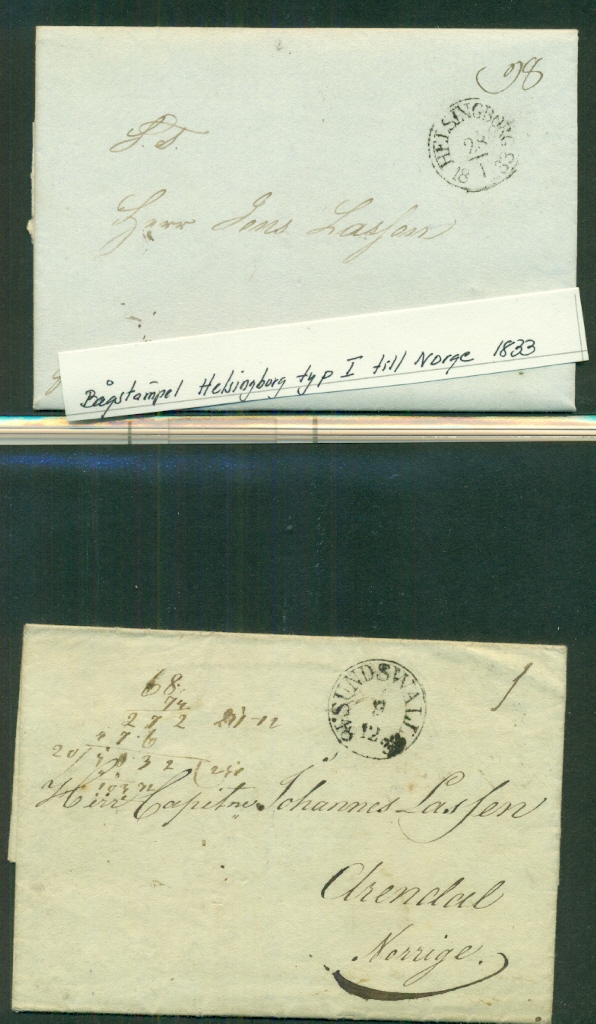 98
S. T.
HELSINGBORG
28
1
18 33
Herr Jens Lassen
Bågstämpel Helsingborg typ I till Norge 1833
68
74
2 7 2
SUNDSWALL
9
12
Herr Capitne Johannes Lassen
Arendal
Norrige.